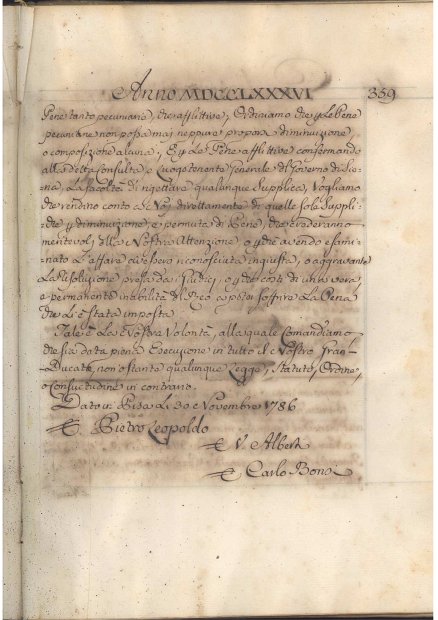 Anno MDCCLXXXVI 359
Pene tanto pecuniarie, che afflittive, Ordiniamo che per le Pene
pecuniarie non possa mai neppure proporsi diminuzione,
o composizione alcuna, E per le Pene afflittive confermando
alla detta Consulta e Luogotenente Generale del Governo di Sie-
na, la facoltà di rigettare qualunque Supplica, Vogliamo
che rendino conto a Noi direttamente di quelle sole Suppli-
che per diminuzione, e permuta di Pene, che crederanno
meritevoli della Nostra Attenzione, o perche avendo esami-
nato L'affare avessero riconosciuta ingiusta, o aggravante
La Risoluzione presa da i Giudici, o perche costi di una vera,
e permanente inabilità del Reo a poter soffrire La Pena
che Li è stata imposta.
Tale è La Nostra Volontà, alla quale Comandiamo,
che sia data piena Esecuzione in tutto il Nostro Gran-
Ducato, non ostante qualunque Legge, Statuto, Ordine,
o Consuetudine in contrario.
Dato in Pisa Li 30 Novembre 1786
Pietro Leopoldo
V. Alberti
Carlo Bonsi